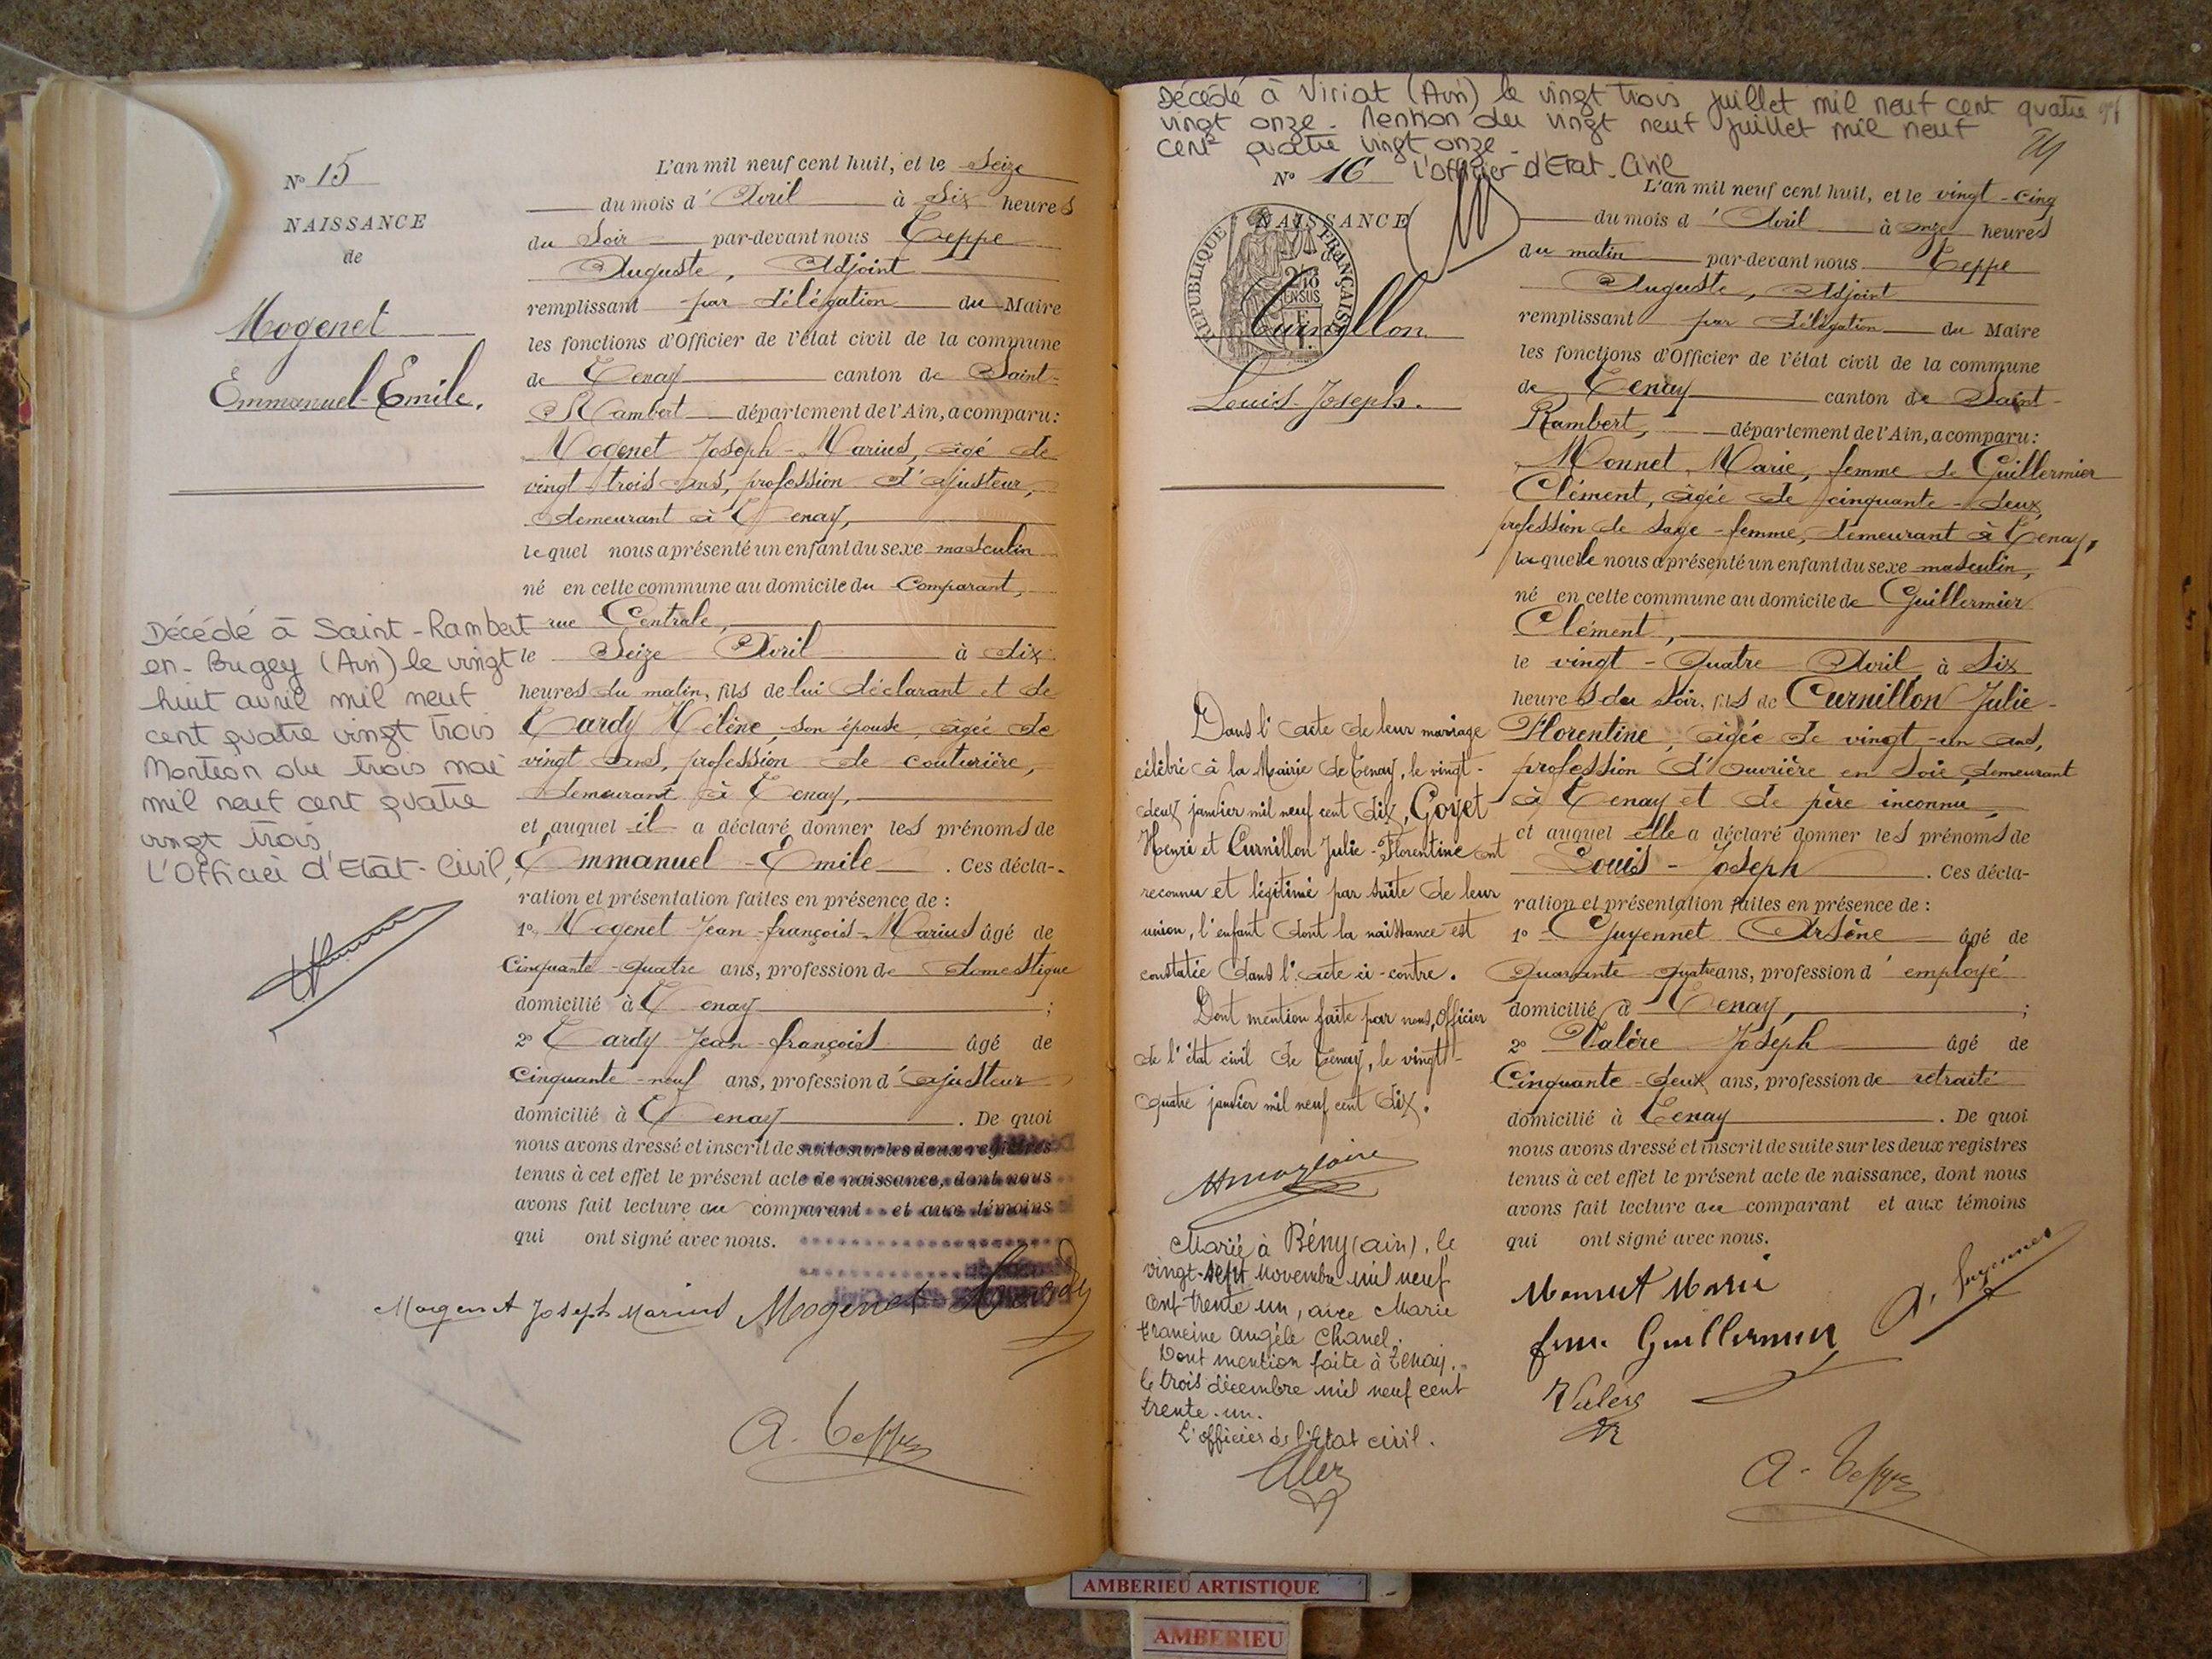 N° 15
NAISSANCE
de
Mogenet
Emmanuel-Emile.
Décédé à Saint-Rambert
en-Bugey (Ain) le vingt
huit avril mil neuf
cent quatre vingt trois
Mention du trois mai
mil neuf cent quatre
vingt trois
L'Officier d'Etat-Civil,
L'an mil neuf cent huit, et le Seize
du mois d'Avril à Six heures
du Soir par-devant nous Teppe
Auguste, Adjoint
remplissant par délégation du Maire
les fonctions d'Officier de l'état civil de la commune
de Tenay canton de Saint-
Rambert département de l'Ain, a comparu:
Mogenet Joseph-Marius, âgé de
vingt-trois ans, profession d'ajusteur,
demeurant à Tenay,
lequel nous a présenté un enfant du sexe masculin
né en cette commune au domicile du Comparant,
rue Centrale,
le Seize Avril à dix
heures du matin, fils de lui déclarant et de
Tardy Hélène, son épouse, âgée de
vingt ans, profession de couturière,
demeurant à Tenay,
et auquel il a déclaré donner les prénoms de
Emmanuel-Emile. Ces décla-
ration et présentation faites en présence de :
1° Mogenet Jean-françois-Marius âgé de
Cinquante-quatre ans, profession de domestique
domicilié à Tenay ;
2° Tardy Jean-françois âgé de
Cinquante-neuf ans, profession d'ajusteur
domicilié à Tenay. De quoi
nous avons dressé et inscrit de suite sur les deux registres
tenus à cet effet le présent acte de naissance, dont nous
avons fait lecture au comparant et aux témoins
qui ont signé avec nous.
Mogenet Joseph Marius Mogenet
A. Teppe
Décédé à Viriat (Ain) le vingt trois juillet mil neuf cent quatre
vingt onze. Mention du vingt neuf juillet mil neuf
cent quatre vingt onze.
L'Officier d'Etat-Civil
N° 16
NAISSANCE
REPUBLIQUE FRANÇAISE
Curnillon
Louis-Joseph.
Dans l'acte de leur mariage
célébré à la Mairie de Tenay, le vingt-
deux janvier mil neuf cent dix, Goyet
Henri et Curnillon Julie-Florentine ont
reconnu et légitimé par suite de leur
union, l'enfant dont la naissance est
constatée dans l'acte ci-contre.
Dont mention faite par nous, Officier
de l'état civil de Tenay, le vingt-
quatre janvier mil neuf cent dix.
Marié à Bény (ain), le
vingt-sept novembre mil neuf
cent trente un, avec Marie
Francine Angèle Chanel.
Dont mention faite à Tenay.
le trois décembre mil neuf cent
trente-un.
L'officier de l'état civil.
L'an mil neuf cent huit, et le vingt-cinq
du mois d'Avril à onze heures
du matin par-devant nous Teppe
Auguste, Adjoint
remplissant par délégation du Maire
les fonctions d'Officier de l'état civil de la commune
de Tenay canton de Saint-
Rambert, département de l'Ain, a comparu:
Monnet Marie, femme de Guillermier
Clément, âgée de cinquante-deux,
profession de sage-femme, demeurant à Tenay,
laquelle nous a présenté un enfant du sexe masculin,
né en cette commune au domicile de Guillermier
Clément,
le vingt-quatre Avril à Six
heures du Soir, fils de Curnillon Julie-
Florentine, âgée de vingt-un ans,
profession d'ouvrière en soie, demeurant
à Tenay et de père inconnu,
et auquel elle a déclaré donner les prénoms de
Louis-Joseph. Ces décla-
ration et présentation faites en présence de :
1° Guyennet Arsène âgé de
Quarante-quatre ans, profession d'employé
domicilié à Tenay, ;
2° Valère Joseph âgé de
Cinquante-deux ans, profession de retraité
domicilié à Tenay. De quoi
nous avons dressé et inscrit de suite sur les deux registres
tenus à cet effet le présent acte de naissance, dont nous
avons fait lecture au comparant et aux témoins
qui ont signé avec nous.
Monnet Marie
A. Guyennet
Valère
A. Teppe
AMBERIEU ARTISTIQUE
AMBERIEU